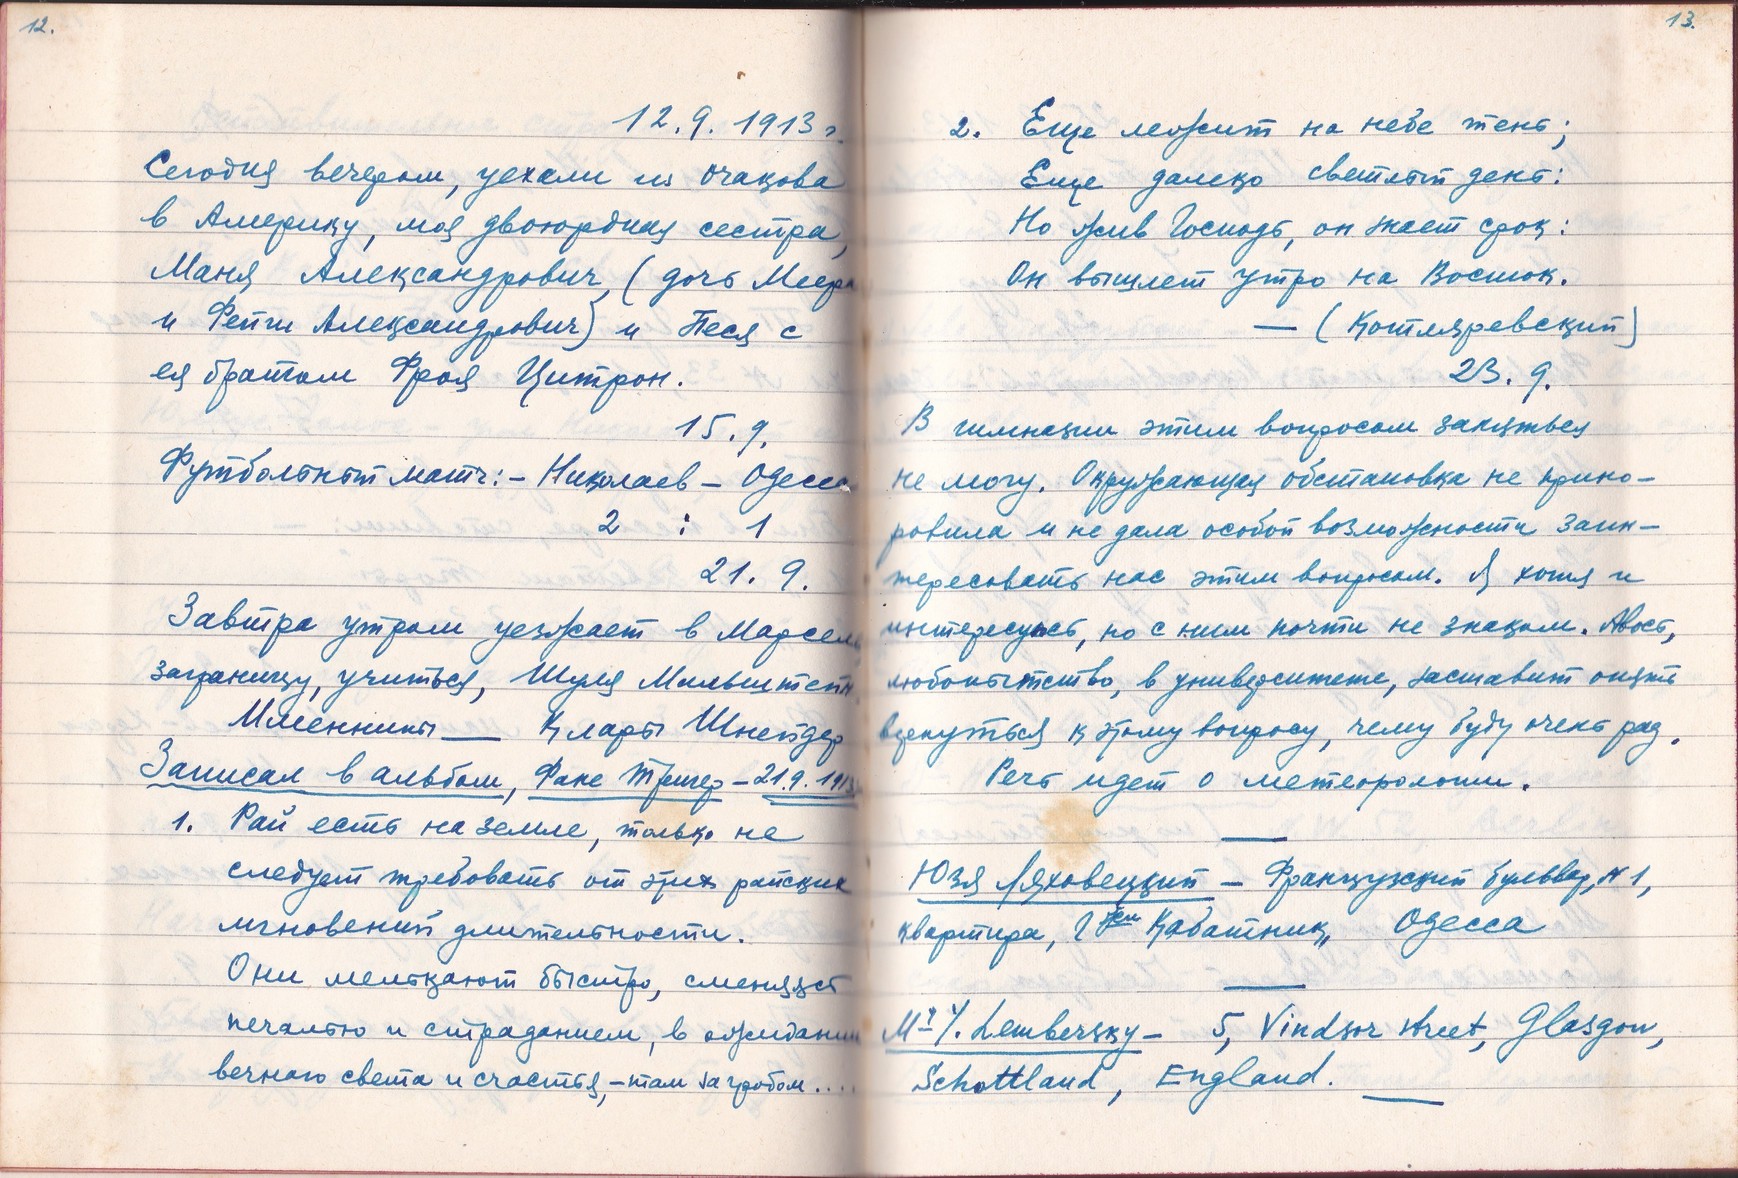 12.
12.9.1913 г.
Сегодня вечером, уехали из Очакова
в Америку, моя двоюродная сестра,
Маня Александрович, (дочь Меера
и Фейги Александрович) и Песя с
ея братом Фроя Цитрон.
15.9.
Футбольный матч: – Николаев – Одесса
2 : 1
21.9.
Завтра утром уезжает в Марсель
заграницу, учиться, Шуля Мильштейн.
Именины — Клары Шнейдер
Записал в альбом, Фане Тригер – 21.9.1913
1. Рай есть на земле, только не
следует требовать от этих райских
мгновений длительности.
Они мелькают быстро, сменяясь
печалью и страданием, в ожидании
вечного света и счастья, – там за гробом....
13.
2. Еще лежит на небе тень;
Еще далеко светлый день:
Но жив Господь, он знает срок:
Он вышлет утро на Восток.
— (Котляревский)
23.9.
В гимназии этим вопросом заняться
не могу. Окружающая обстановка не прино-
ровила и не дала особой возможности заин-
тересовать нас этим вопросом. Я хотя и
интересуюсь, но с ним почти не знаком. Авось,
любопытство, в университете, заставит опять
вернуться к этому вопросу, чему буду очень рад.
Речь идет о метеорологии.
Юзя Ляховецкий – Французский бульвар, № 1,
квартира, Кабатник, Одесса
Mr Y. Lembersky – 5, Vindsor street, Glasgow,
Schottland, England.